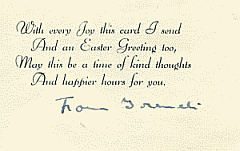 With every Joy this card I send
And an Easter Greeting too,
May this be a time of kind thoughts
And happier hours for you.
From